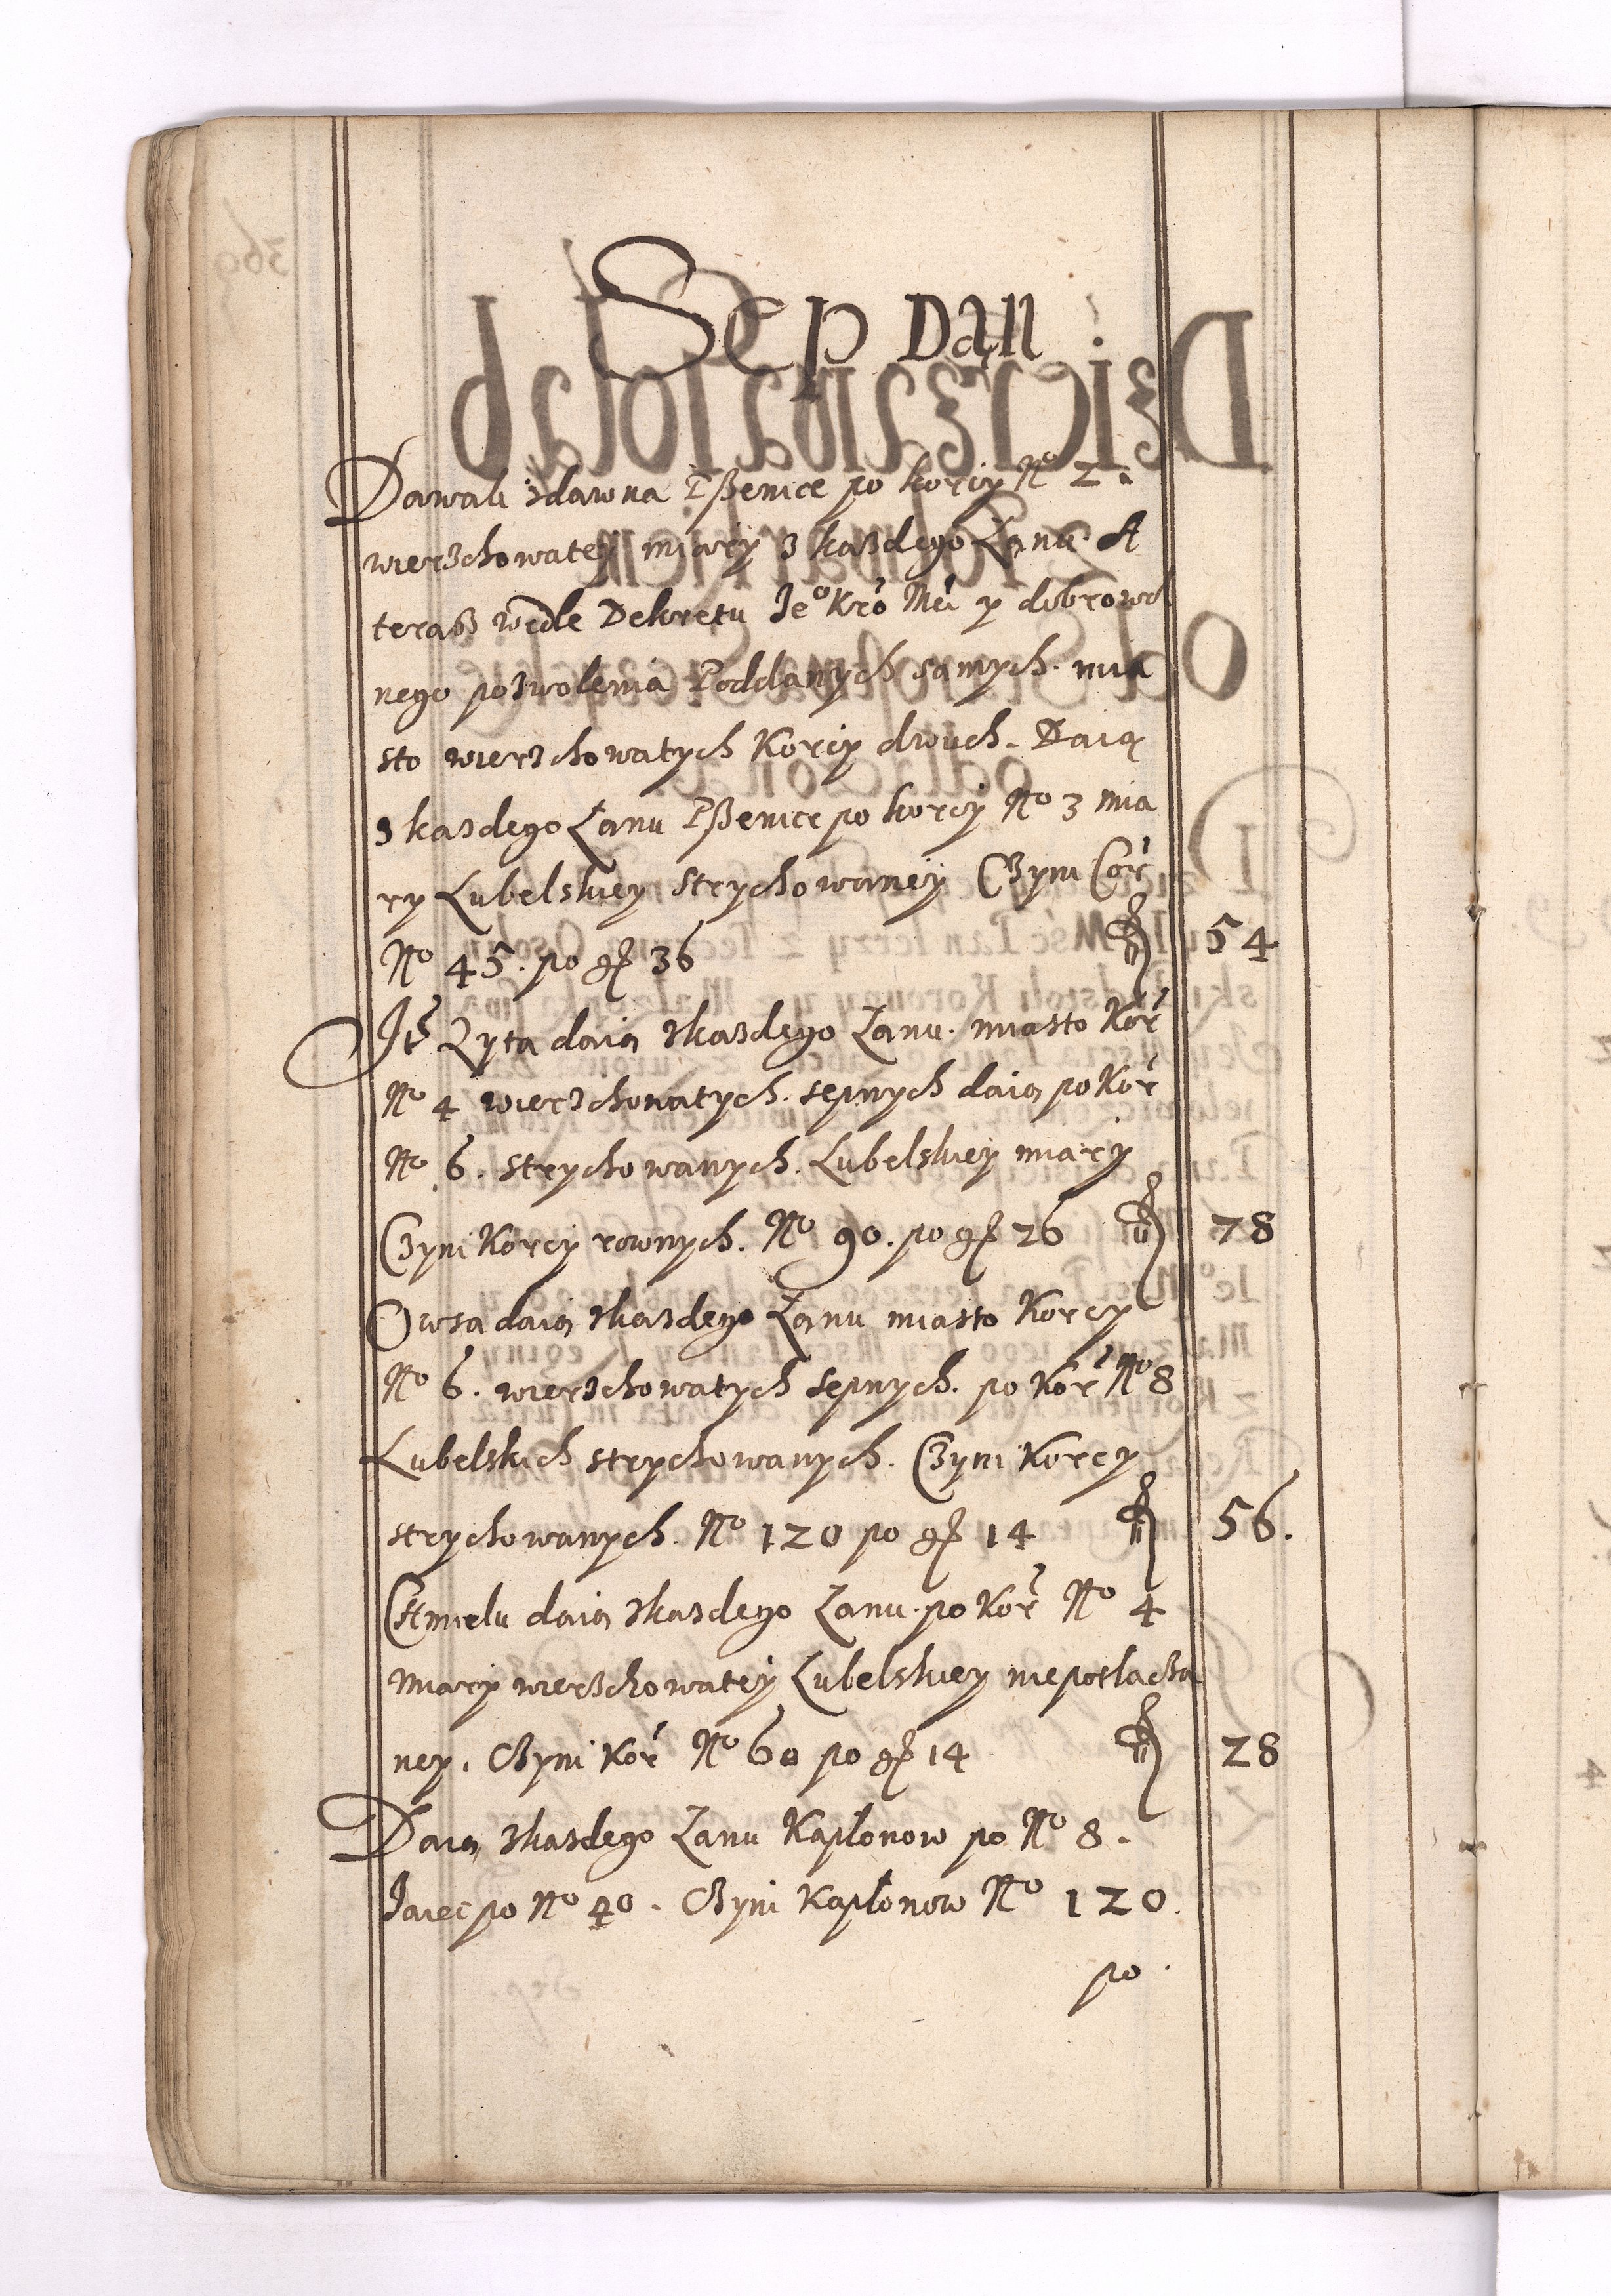 Sep Dań
Dawali zdawna Pßenice po korcy No 2.
wierzchowatey miary z kaszdego Łanu. A
terasz wedle Dekretu Jeo Kro Mci y dobrowol
nego pozwolenia Poddanych samych. mia
sto wierzchowatych Korcy dwuch. Daią
z kaszdego Łanu Pßenice po korcy No 3 mia
ry Lubelskiey strychowaney Czyni Cor
No 45. po gr 36 54
Ite Zyta daią zkaszdego Łanu. miasto Kor
No 4 wierzchowatych. sepnych daią po Kor
No 6. strychowanych. Lubelskiey miary
Czyni Korcy rownych. No 90. po gr 26 78
Owsa daią zkaszdego Łanu miasto Korcy
No 6. wierzchowatych sepnych. po Kor No 8
Lubelskich strychowanych. Czyni Korcy
strychowanych. No 120 po gr 14 56.
Chmielu daią zkaszdego Łanu. po Kor No 4
miary wierzchowatey Lubelskiey niepotlacza
ney. Czyni Kor No 60 po gr 14 28
Daią zkaszdego Łanu Kapłonow po No 8.
Jaiec po No 40. Czyni Kapłonow No 120.
po